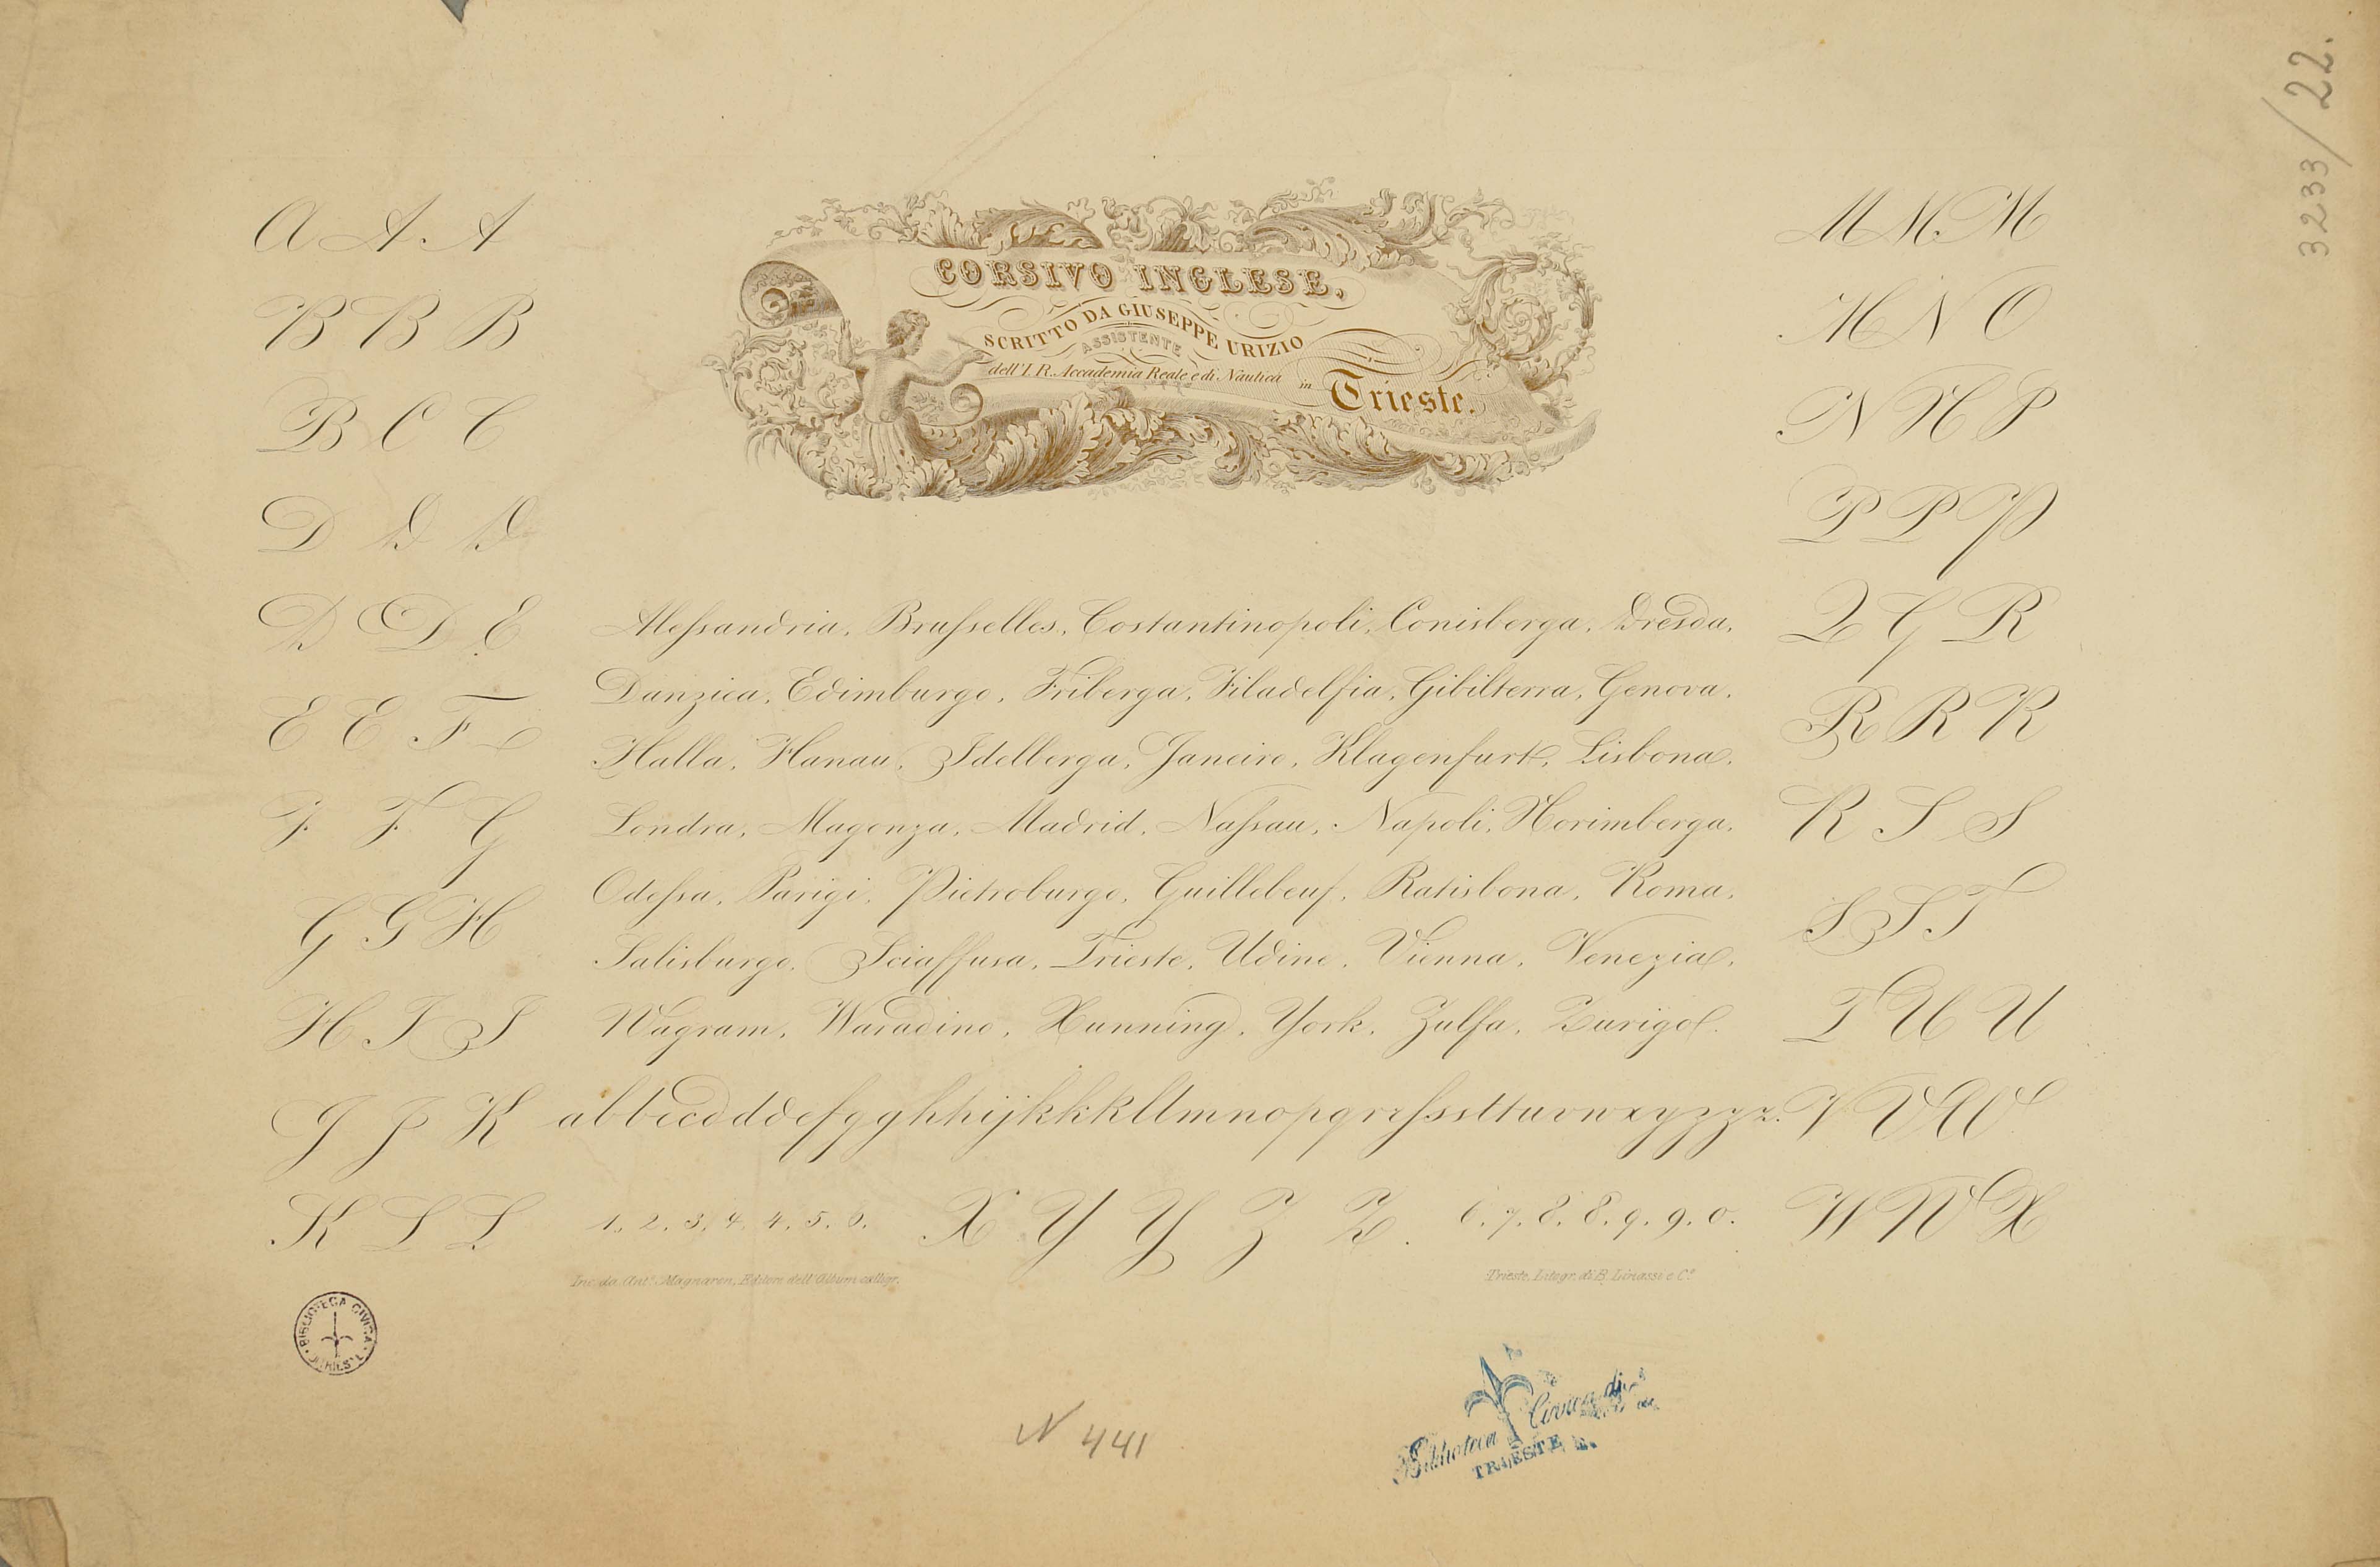 3233/22.
CORSIVO INGLESE,
SCRITTO DA GIUSEPPE URIZIO
ASSISTENTE
dell'I. R. Accademia Reale e di Nautica in Trieste.
A A A
B B B
B C C
D D D
D D E
E E F
F F G
G G H
H I I
J J K
K L L
Alessandria, Brusselles, Costantinopoli, Conisberga, Dresda,
Danzica, Edimburgo, Friberga, Filadelfia, Gibilterra, Genova,
Halla, Hanau, Idelberga, Janeiro, Klagenfurt, Lisbona,
Londra, Magonza, Madrid, Nassau, Napoli, Norimberga,
Odessa, Parigi, Pietroburgo, Quillebeuf, Ratisbona, Roma,
Salisburgo, Sciaffusa, Trieste, Udine, Vienna, Venezia,
Wagram, Waradino, Xunning, York, Zulfa, Zurigo.
abbccdddefgghhijkkkllmnopqrrsssttuvwxyzzz.
1. 2. 3. 4. 4. 5. 6. X Y Y Z Z. 6. 7. 8. 8. 9. 9. 0.
M M M
N N O
N N P
P P P
Q Q R
R R R
R S S
S S T
T U U
V V W
W W X
Inc. da Ant. Magnaron, Editore dell'Album calligr.
Trieste, Litogr. di B. Linassi e Co.
BIBLIOTECA CIVICA TRIESTE
N 441
Biblioteca Civica di
TRIESTE